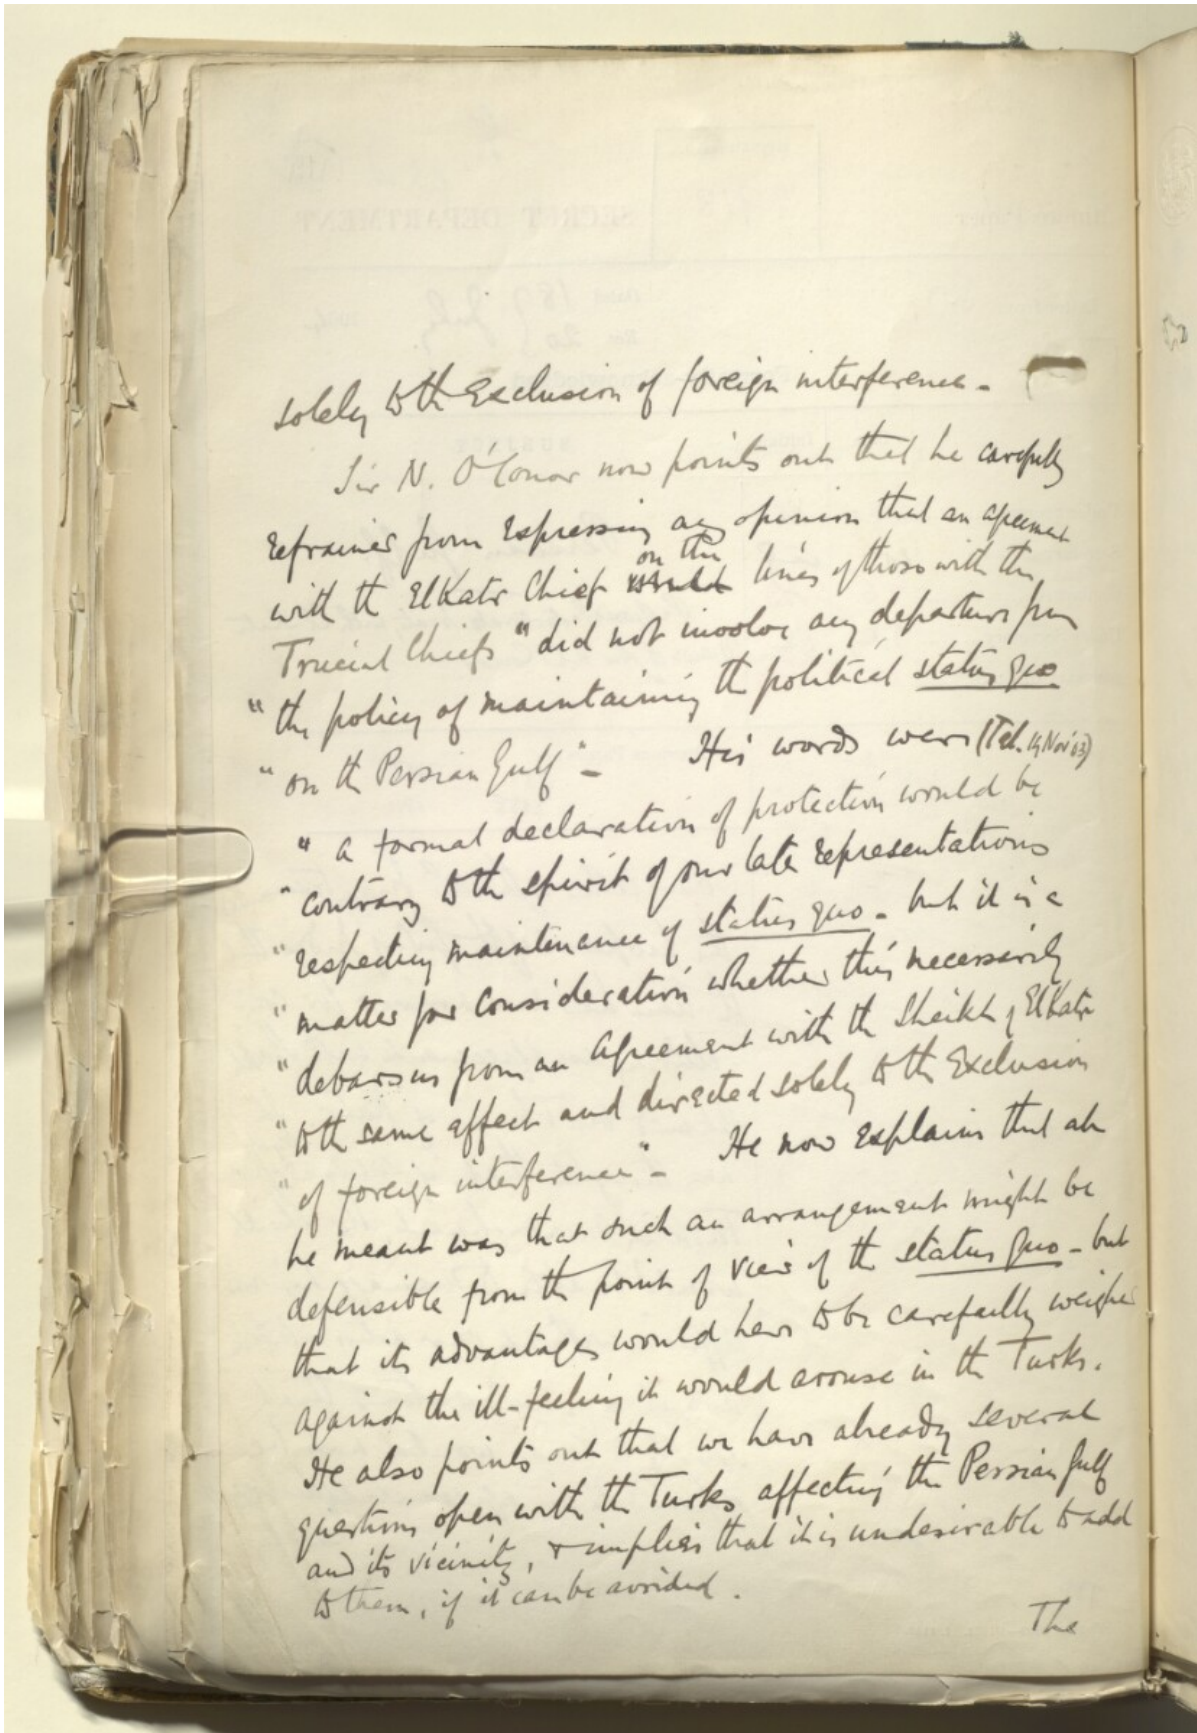 solely to the exclusion of foreign interference -
Sir N. O'Conor now points out that he carefully
refrained from expressing any opinion that an agreement
with the El Katr Chief on the lines of those with the
Trucial Chiefs "did not involve any departure from
"the policy of maintaining the political status quo
"on the Persian Gulf" - His words were (Tel. 14 Nov '03)
"a formal declaration of protection would be
"contrary to the spirit of our late representations
"respecting maintenance of status quo - but it is a
"matter for consideration whether this necessarily
"debars us from an agreement with the Sheikh of El Katr
"to the same effect and directed solely to the exclusion
"of foreign interference" - He now explains that all
he meant was that such an arrangement might be
defensible from the point of view of the status quo - but
that its advantages would have to be carefully weighed
against the ill-feeling it would arouse in the Turks.
He also points out that we have already several
questions open with the Turks affecting the Persian Gulf
and its vicinity, & implies that it is undesirable to add
to them, if it can be avoided.
The